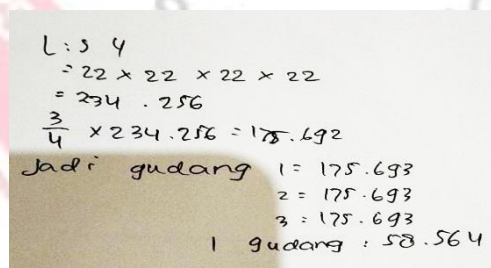 L : s 4
= 22 x 22 x 22 x 22
= 234 . 256
3/4 x 234.256 = 175.692
Jadi gudang 1 = 175.693
2 = 175.693
3 : 175.693
1 gudang : 58.564